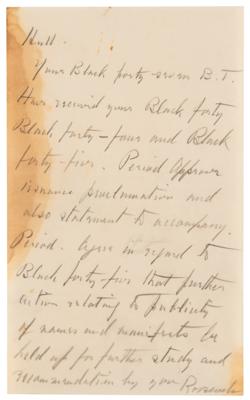 Hull.
Your Black forty-seven B.T.
Have received your Black forty
Black forty-four and Black
forty-five. Period Approve
issuance proclamation and
also statement to accompany.
Period. Agree in regard to
Black forty five that further
action relating to publicity
of names and manifests be
held up for further study and
recommendation by you Roosevelt